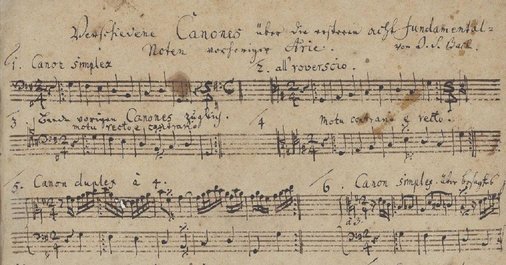 Verschiedene Canones über die ersteren acht Fundamental=
Noten vorheriger Arie. von J. S. Bach.
1. Canon simplex
2. all' roverscio.
3. Beide vorigen Canones zugleich.
motu recto e contrario
4 Motu contrario e recto.
5. Canon duplex à 4.
6. Canon simplex über besagtes